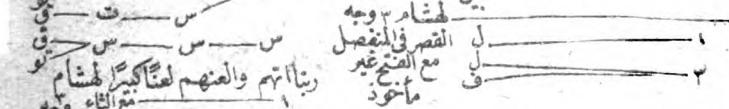 لهشام ٣ وجه
س ت ق
ل القصر فى المنفصل
س س س ق
ل مع الفتح غير
تو
ف مأخوذ
ربنا اٰتهم والعنهم لعنًا كبيرًا لهشام